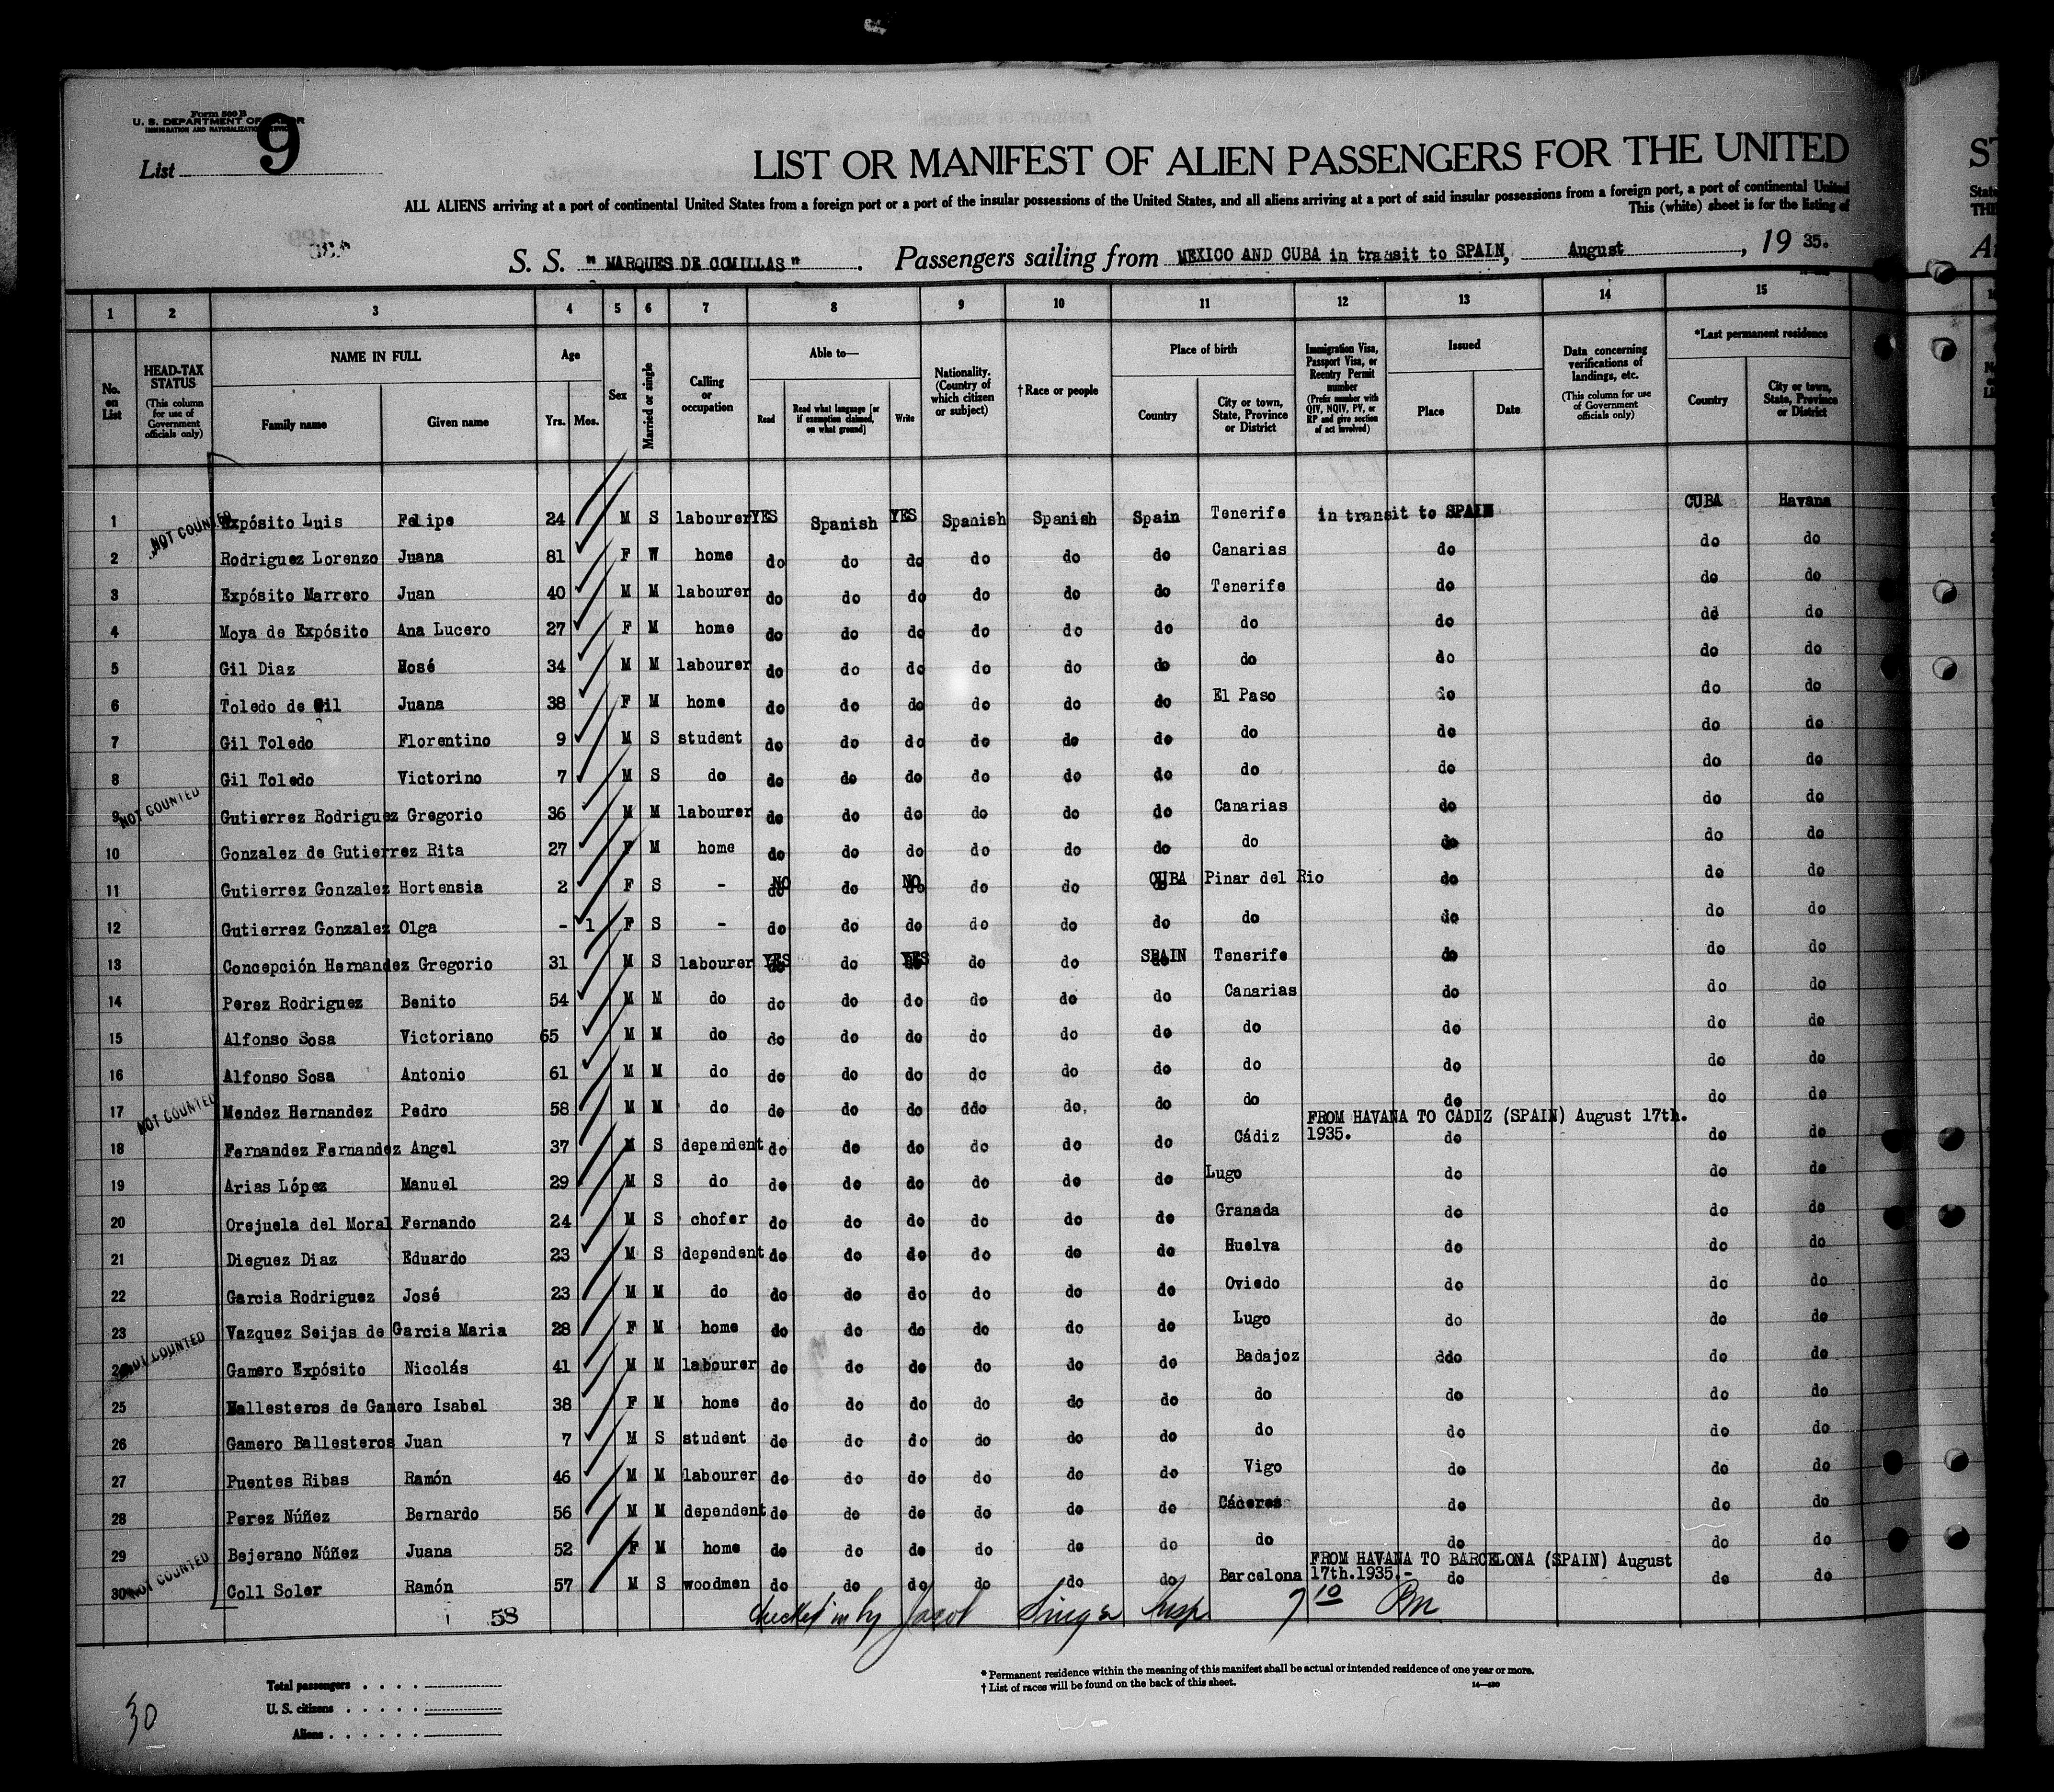 Form 500 B
U. S. DEPARTMENT OF LABOR
IMMIGRATION AND NATURALIZATION SERVICE
List 9
LIST OR MANIFEST OF ALIEN PASSENGERS FOR THE UNITED
ALL ALIENS arriving at a port of continental United States from a foreign port or a port of the insular possessions of the United States, and all aliens arriving at a port of said insular possessions from a foreign port, a port of continental United
This (white) sheet is for the listing of
S. S. "MARQUES DE COMILLAS". Passengers sailing from MEXICO AND CUBA in transit to SPAIN, August, 19 35.
1 2 3 4 5 6 7 8 9 10 11 12 13 14 15
No. on List
HEAD-TAX STATUS (This column for use of Government officials only)
NAME IN FULL Family name Given name
Age Yrs. Mos.
Sex
Married or single
Calling or occupation
Able to— Read Read what language [or if exemption claimed, on what ground] Write
Nationality. (Country of which citizen or subject)
† Race or people
Place of birth Country City or town, State, Province or District
Immigration Visa, Passport Visa, or Reentry Permit number (Prefix number with QIV, NQIV, PV, or RP and give section of act involved)
Issued Place Date
Data concerning verifications of landings, etc. (This column for use of Government officials only)
*Last permanent residence Country City or town, State, Province or District
NOT COUNTED
1 Expósito Luis Felipe 24 M S labourer YES Spanish YES Spanish Spanish Spain Tenerife in transit to SPAIN CUBA Havana
2 Rodriguez Lorenzo Juana 81 F W home do do do do do do Canarias do do do
3 Expósito Marrero Juan 40 M M labourer do do do do do do Tenerife do do do
4 Moya de Expósito Ana Lucero 27 F M home do do do do do do do do dd do
5 Gil Diaz Hosé 34 M M labourer do do do do do do do do do do
6 Toledo de Gil Juana 38 F M home do do do do do do El Paso do do do
7 Gil Toledo Florentino 9 M S student do do do do do do do do do do
8 Gil Toledo Victorino 7 M S do do do do do do do do do do do
NOT COUNTED
9 Gutierrez Rodriguez Gregorio 36 M M labourer do do do do do do Canarias do do do
10 Gonzalez de Gutierrez Rita 27 F M home do do do do do do do do do do
11 Gutierrez Gonzalez Hortensia 2 F S - NO do NO do do CUBA Pinar del Rio do do do
12 Gutierrez Gonzalez Olga - 1 F S - do do do do do do do do do do
13 Concepción Hernandez Gregorio 31 M S labourer YES do YES do do SPAIN Tenerife do do do
14 Perez Rodriguez Benito 54 M M do do do do do do do Canarias do do do
15 Alfonso Sosa Victoriano 65 M M do do do do do do do do do do do
16 Alfonso Sosa Antonio 61 M M do do do do do do do do do do do
NOT COUNTED
17 Mendez Hernandez Pedro 58 M M do do do do ddo do. do do do do do
FROM HAVANA TO CADIZ (SPAIN) August 17th. 1935.
18 Fernandez Fernandez Angel 37 M S dependent do do do do do do Cádiz do do do
19 Arias López Manuel 29 M S do do do do do do do Lugo do do do
20 Orejuela del Moral Fernando 24 M S chofer do do do do do do Granada do do do
21 Dieguez Diaz Eduardo 23 M S dependent do do do do do do Huelva do do do
22 Garcia Rodriguez José 23 M M do do do do do do do Oviedo do do do
23 Vazquez Seijas de Garcia Maria 28 F M home do do do do do do Lugo do do do
NOT COUNTED
24 Gamero Expósito Nicolás 41 M M labourer do do do do do do Badajoz ddo do do
25 Ballesteros de Gamero Isabel 38 F M home do do do do do do do do do do
26 Gamero Ballesteros Juan 7 M S student do do do do do do do do do do
27 Puentes Ribas Ramón 46 M M labourer do do do do do do Vigo do do do
28 Perez Núñez Bernardo 56 M M dependent do do do do do do Cáceres do do do
29 Bejerano Núñez Juana 52 F M home do do do do do do do do do do
FROM HAVANA TO BARCELONA (SPAIN) August 17th.1935.-
NOT COUNTED
30 Coll Soler Ramón 57 M S woodmen do do do do do do Barcelona do do do
58
checked in by Jacob Singer Insp 7 10 Pm
* Permanent residence within the meaning of this manifest shall be actual or intended residence of one year or more.
† List of races will be found on the back of this sheet.
14—430
Total passengers
U. S. citizens
Aliens
30